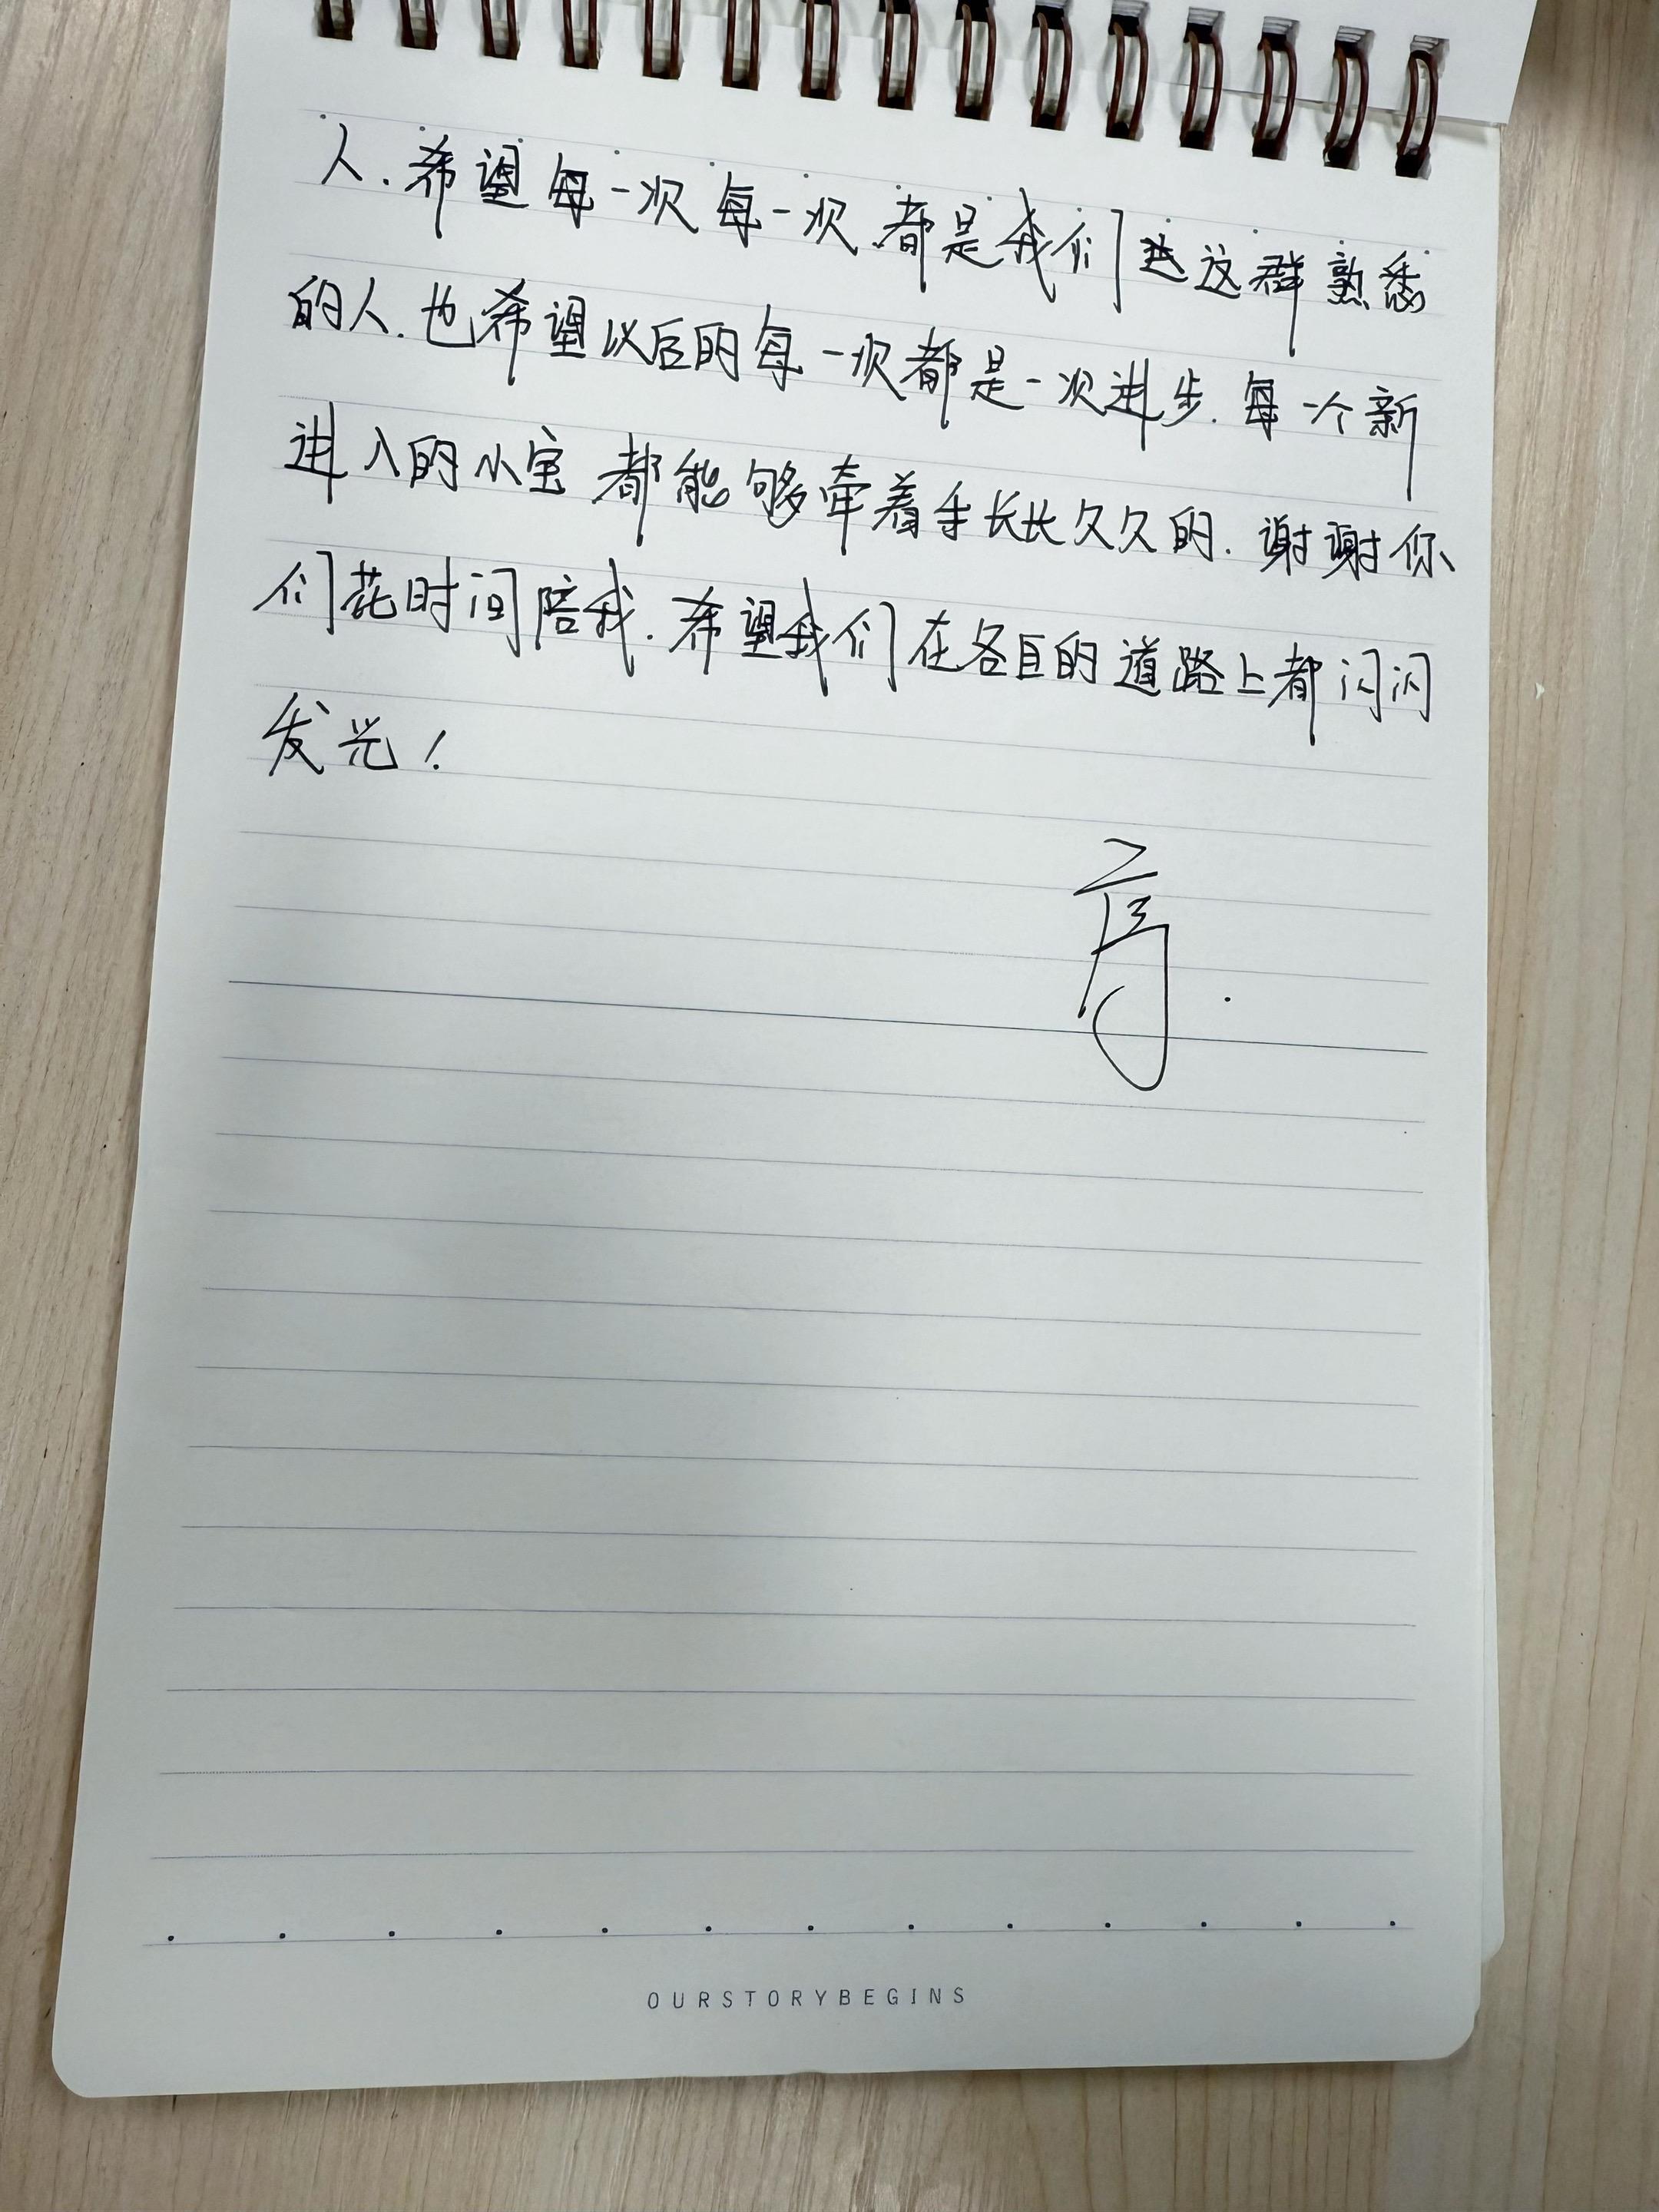 人.希望每一次每一次都是我们这群熟悉
的人.也希望以后的每一次都是一次进步.每一个新
进入的小宝都能够牵着手长长久久的.谢谢你
们花时间陪我.希望我们在各自的道路上都闪闪
发光!
OURSTORYBEGINS